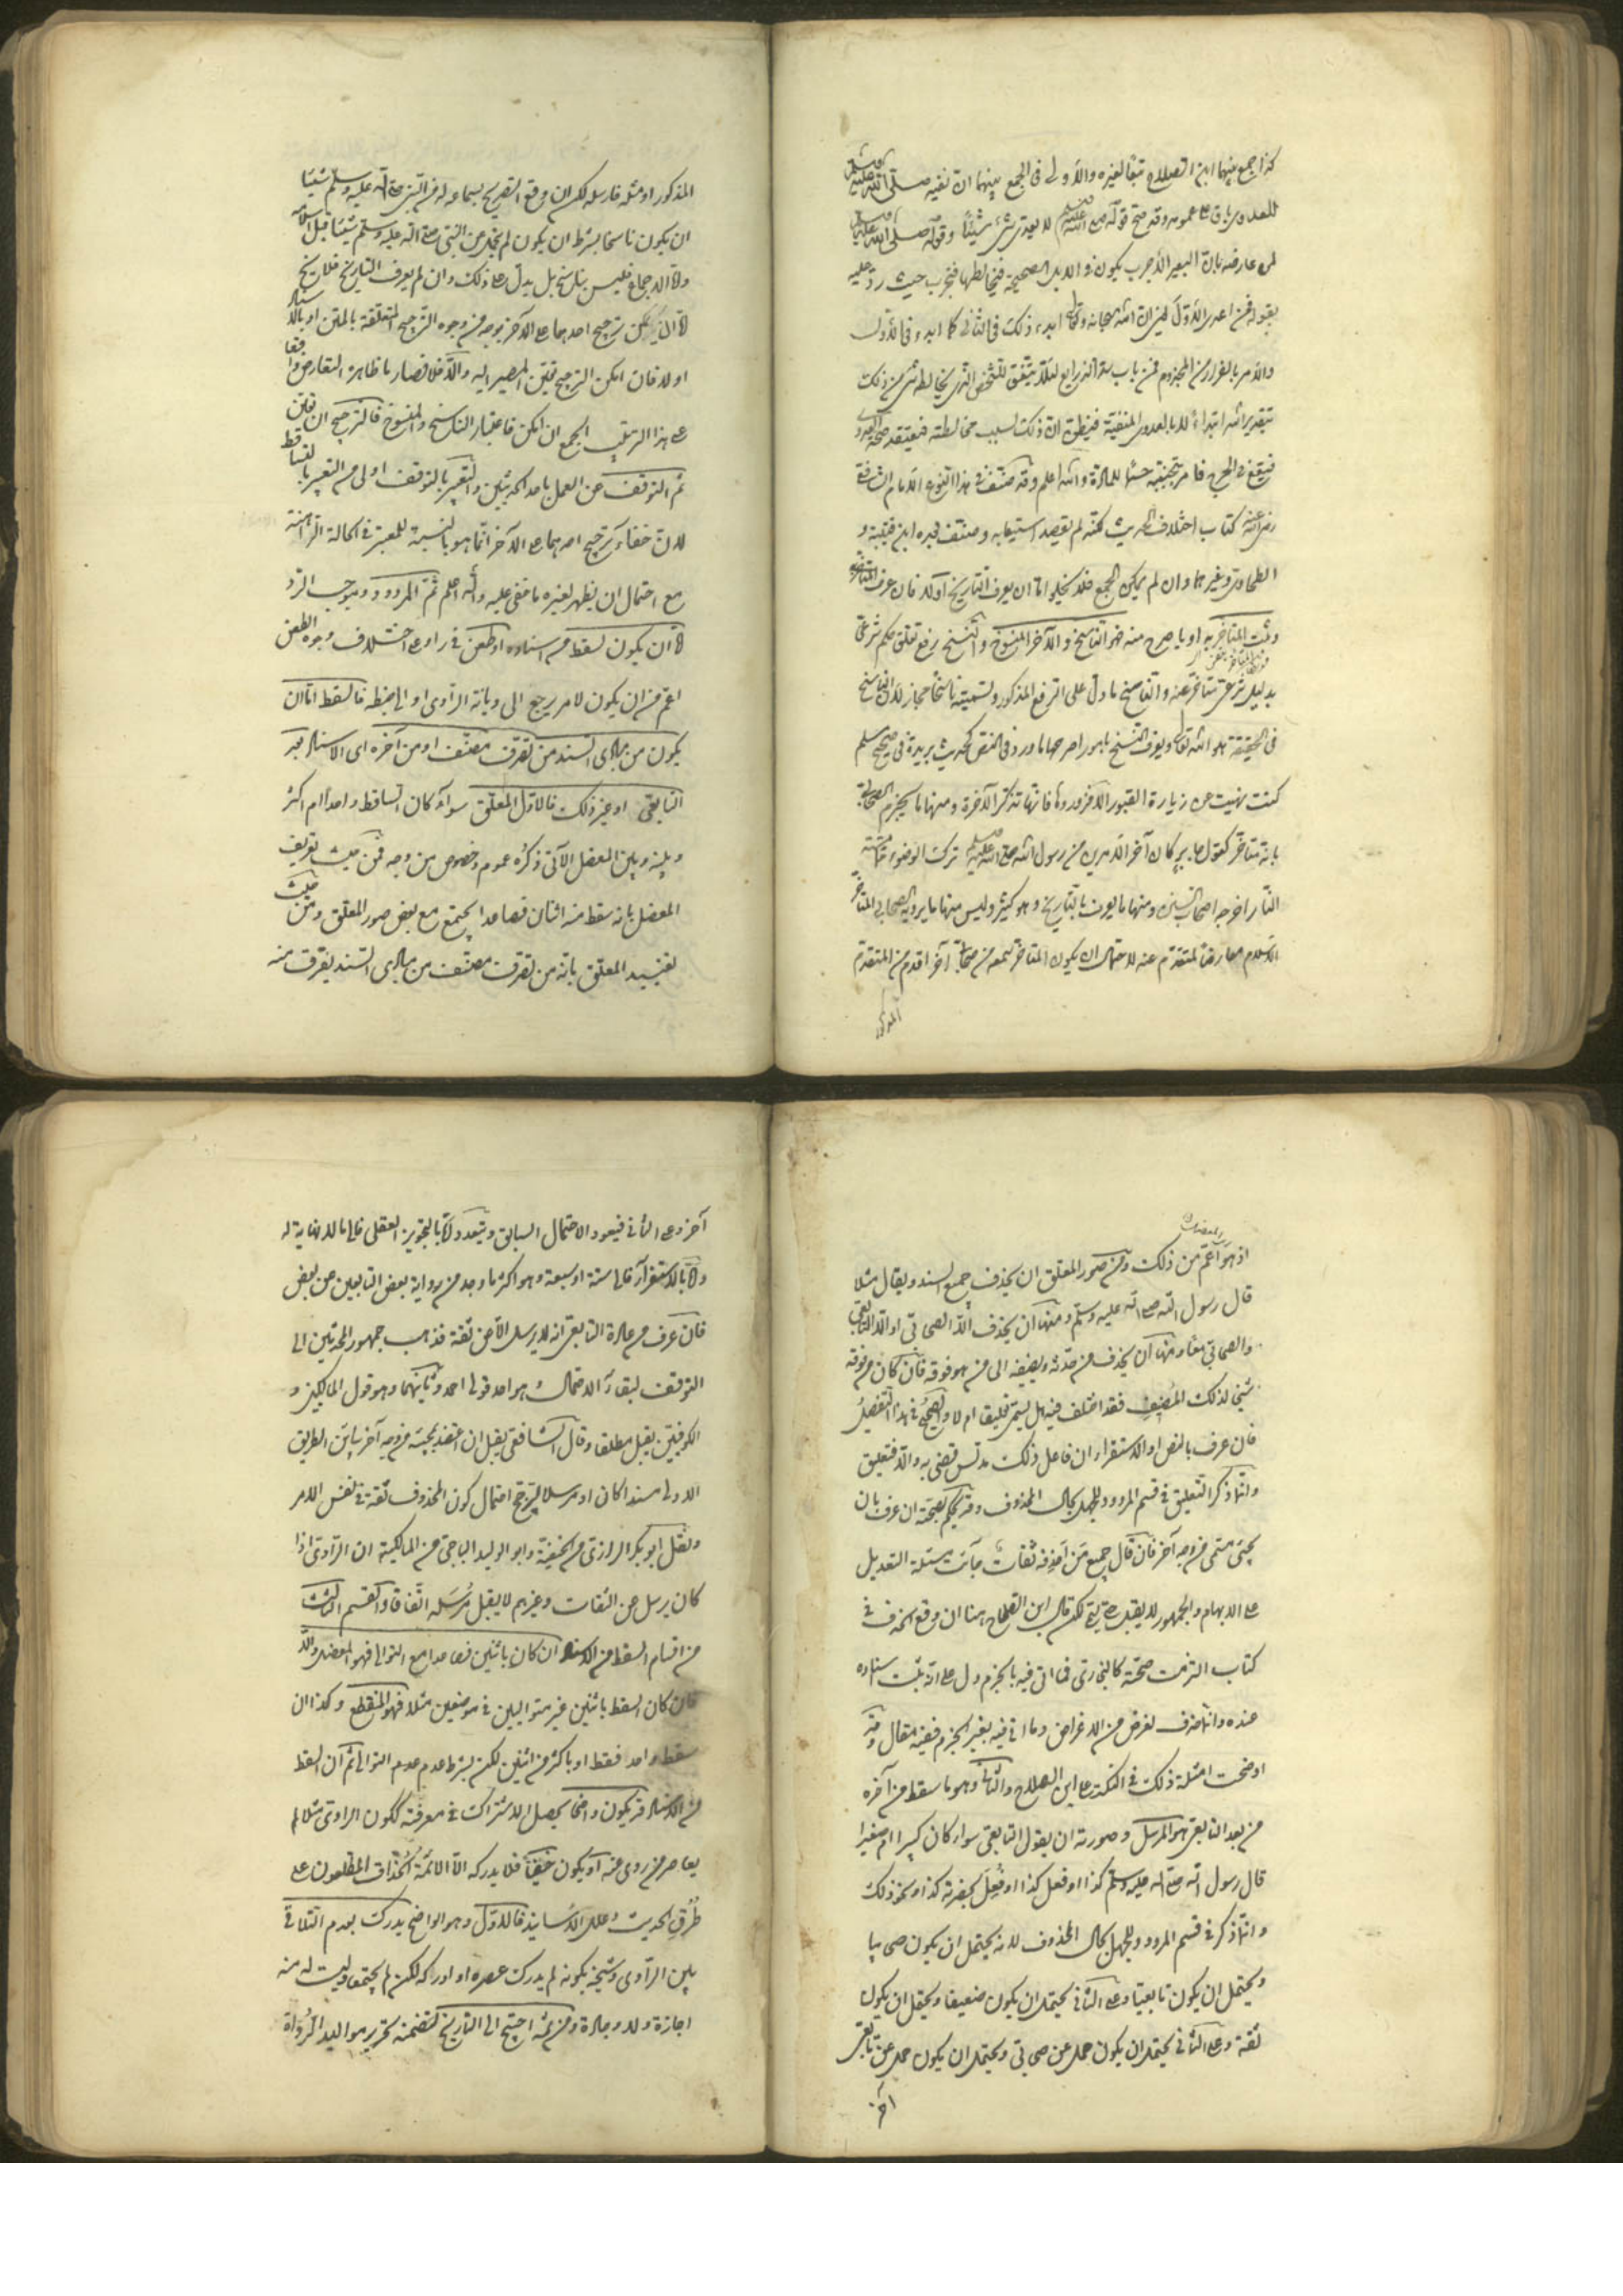 كذا جمع بينهما ابن الصلاح تبعا لغيره والاولى فى الجمع بينهما ان نفيه صلى الله عليه وسلم
للعدوى باق على عمومه وقد صح قوله صلى الله عليه وسلم لا يعدى شئ شيئا وقوله صلى الله عليه وسلم
لمن عارضه بان البعير الاجرب يكون فى الابل الصحيحة فيخالطها فتجرب حيث رد عليه
بقوله فمن اعدى الاول يعنى ان الله سبحانه وتعالى ابتدء ذلك فى الثانى كما ابتدء فى الاول
والامر بالفرار من المجذوم فمن باب سد الذرايع لئلا يتفق للشخص الذى يخالطه شئ من ذلك
بتقدير الله ابتداء لا بالعدوى المنفية فيظن ان ذلك لسبب مخالطته فيعتقد صحة العدوى
فيقع فى الحرج فامر بتجنبه حسما للمادة والله اعلم وقد صنف فى هذا النوع الامام الشافعى
رضى الله عنه كتاب اختلاف الحديث لكنه لم يقصد استيعابه وصنف فيه ابن قتيبة و
الطحاوى وغيرهما وان لم يمكن الجمع فلا يخلوا اما ان يعرف التاريخ اولا فان عرف
وثبت المتاخر به او باصرح منه فهو الناسخ والاخر المنسوخ والنسخ رفع تعلق حكم شرعى
بدليل شرعى متاخر عنه والناسخ ما دل على الرفع المذكور وتسميته ناسخا مجاز لان الناسخ
فى الحقيقة هو الله تعالى ويعرف النسخ بامور اصرحها ما ورد فى النص كحديث بريدة فى صحيح مسلم
كنت نهيت عن زيارة القبور الا فزوروها فانها تذكر الاخرة ومنها ما يجزم الصحابى
بانه متاخر كقول جابر كان آخر الامرين من رسول الله صلى الله عليه وسلم ترك الوضوء مما مسته
النار اخرجه اصحاب السنن ومنها ما يعرف بالتاريخ وهو كثير وليس منها ما يرويه الصحابى المتاخر
الاسلام معارضا لمتقدم عنه لاحتمال ان يكون المتاخر سمعه من صحابى آخر اقدم من المتقدم
المذكور
المذكور او مثله فارسله لكن ان وقع التصريح بسماعه له من النبى صلى الله عليه وسلم شيئا
ان يكون ناسخا بشرط ان يكون لم يتحمل من النبى صلى الله عليه وسلم شيئا قبل اسلامه
واما الاجماع فليس بناسخ بل يدل على ذلك وان لم يعرف التاريخ فلا يخ
اما ان يمكن ترجيح احدهما على الآخر بوجه من وجوه الترجيح المتعلقة بالمتن او بالاسناد
اولا فان امكن الترجيح تعين المصير اليه والا فلا فصار ما ظاهره التعارض واقعا
على هذا الترتيب الجمع ان امكن فاعتبار الناسخ والمنسوخ فالترجيح ان تعين
ثم التوقف عن العمل باحد الحديثين والتعبير بالتوقف اولى من التعبير بالتساقط
لان خفاء ترجيح احدهما على الآخر انما هو بالنسبة للمعتبر فى الحالة الراهنة
مع احتمال ان يظهر لغيره ما خفى عليه والله اعلم ثم المردود وموجب الرد
اما ان يكون لسقط من اسناده او طعن فى راو على اختلاف وجوه الطعن
اعم من ان يكون لامر يرجع الى ديانة الراوى او الى ضبطه فالسقط اما ان
يكون من مبادى السند من تصرف مصنف او من آخره اى الاسناد بعد
التابعى او غير ذلك فالاول المعلق سواء كان الساقط واحدا ام اكثر
وبينه وبين المعضل الآتى ذكره عموم وخصوص من وجه فمن حيث تعريف
المعضل بانه سقط منه اثنان فصاعدا يجتمع مع بعض صور المعلق ومن حيث
تقييد المعلق بانه من تصرف مصنف من مبادى السند يفترق منه
اذ هو اعم من ذلك ومن صور المعلق ان يحذف جميع السند ويقال مثلا
قال رسول الله صلى الله عليه وسلم ومنها ان يحذف الا الصحابى او الا التابعى
والصحابى معا ومنها ان يحذف من حدثه ويضيفه الى من هو فوقه فان كان من فوقه
شيخا لذلك المصنف فقد اختلف فيه هل يسمى تعليقا ام لا والصحيح فى هذا التفصيل
فان عرف بالنص او الاستقراء ان فاعل ذلك مدلس قضى به والا فتعليق
وانما ذكر التعليق فى قسم المردود للجهل بحال المحذوف وقد يحكم بصحته ان عرف بان
يجئ مسمى من وجه آخر فان قال جميع من احذفه ثقات جاءت مسئلة التعديل
على الابهام والجمهور لا يقبل حتى يسمى لكن قال ابن الصلاح هنا ان وقع الحذف فى
كتاب التزمت صحته كالبخارى فما اتى فيه بالجزم دل على انه ثبت اسناده
عنده وانما حذف لغرض من الاغراض وما اتى فيه بغير الجزم ففيه مقال وقد
اوضحت امثلة ذلك فى النكت على ابن الصلاح والثانى وهو ما سقط من آخره
من بعد التابعى هو المرسل وصورته ان يقول التابعى سواء كان كبيرا ام صغيرا
قال رسول الله صلى الله عليه وسلم كذا او فعل كذا او فعل بحضرته كذا ونحو ذلك
وانما ذكر فى قسم المردود للجهل بحال المحذوف لانه يحتمل ان يكون صحابيا
ويحتمل ان يكون تابعيا وعلى الثانى يحتمل ان يكون ضعيفا ويحتمل ان يكون
ثقة وعلى الثانى يحتمل ان يكون حمل عن صحابى ويحتمل ان يكون حمل عن تابعى
آخر
آخر وعلى الثانى فيعود الاحتمال السابق ويتعدد اما بالتجويز العقلى فالى ما لا نهاية له
واما بالاستقراء فالى ستة او سبعة وهو اكثر ما وجد من رواية بعض التابعين عن بعض
فان عرف من عادة التابعى انه لا يرسل الا عن ثقة فذهب جمهور المحدثين الى
التوقف لبقاء الاحتمال وهو احد قولى احمد وثانيهما وهو قول المالكيين و
الكوفيين يقبل مطلقا وقال الشافعى يقبل ان اعتضد بمجيئه من وجه آخر يباين الطريق
الاولى مسندا كان او مرسلا ليترجح احتمال كون المحذوف ثقة فى نفس الامر
ونقل ابو بكر الرازى من الحنفية وابو الوليد الباجى من المالكية ان الراوى اذا
كان يرسل عن الثقات وغيرهم لا يقبل مرسله اتفاقا والقسم الثالث
من اقسام السقط من الاسناد ان كان باثنين فصاعدا مع التوالى فهو المعضل والا
فان كان السقط باثنين غير متواليين فى موضعين مثلا فهو المنقطع وكذا ان
سقط واحد فقط او باكثر من اثنين لكن بشرط عدم التوالى ثم ان السقط
من الاسناد قد يكون واضحا يحصل الاشتراك فى معرفته ككون الراوى مثلا لم
يعاصر من روى عنه او يكون خفيا فلا يدركه الا الائمة الحذاق المطلعون على
طرق الحديث وعلل الاسانيد فالاول وهو الواضح يدرك بعدم التلاقى
بين الراوى وشيخه بكونه لم يدرك عصره او ادركه لكن لم يجتمعا وليست له منه
اجازة ولا وجادة ومن ثمه احتيج الى التاريخ لتضمنه تحرير مواليد الرواة